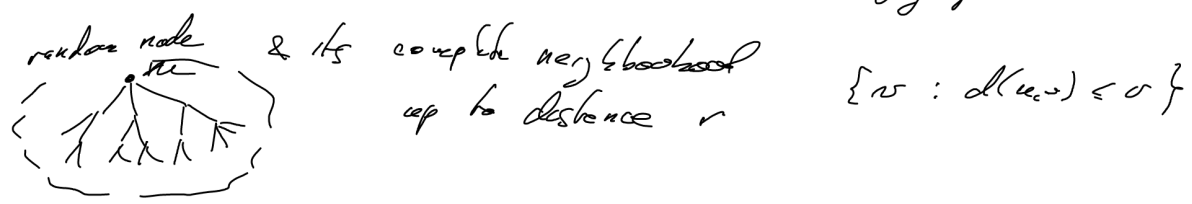 random node & its complete neighborhood
up to distance r
{v : d(u,v) ≤ r}